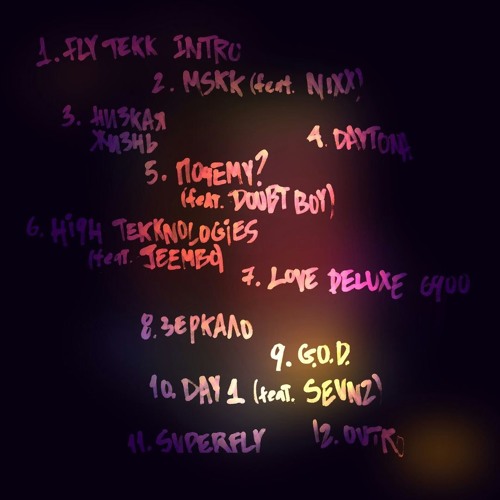 1. FLY TEKK INTRO
2. MSKK (feat. NIXX)
3. НИЗКАЯ
ЖИЗНЬ
4. DAYTONA
5. ПОЧЕМУ?
(feat. DOUBT BOY)
6. HIGH TEKKNOLOGIES
(feat. JEEMBO)
7. LOVE DELUXE 6900
8. ЗЕРКАЛО
9. G.O.D.
10. DAY 1 (feat. SEVNZ)
11. SUPERFLY
12. OUTRO